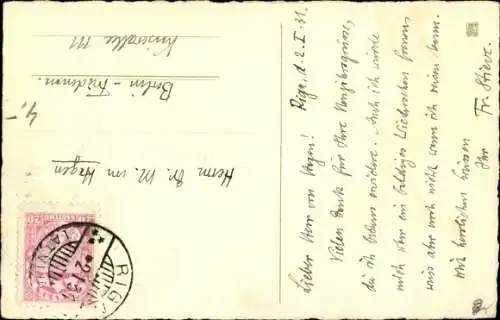 Riga, d. 2.I.31.
Lieber Herr von Hagen!
Vielen Dank für Ihre Neujahrsgrüsse,
die ich bestens erwidere. Auch ich würde
mich über ein baldiges Wiedersehen freuen,
weiss aber noch nicht wann ich reisen kann.
Mit herzlichen Grüssen
Ihr
Fr. Stieve.
Herrn Dr. M. von Hagen
Berlin-Friedenau.
4,-
RIGA
LATVIJA
20